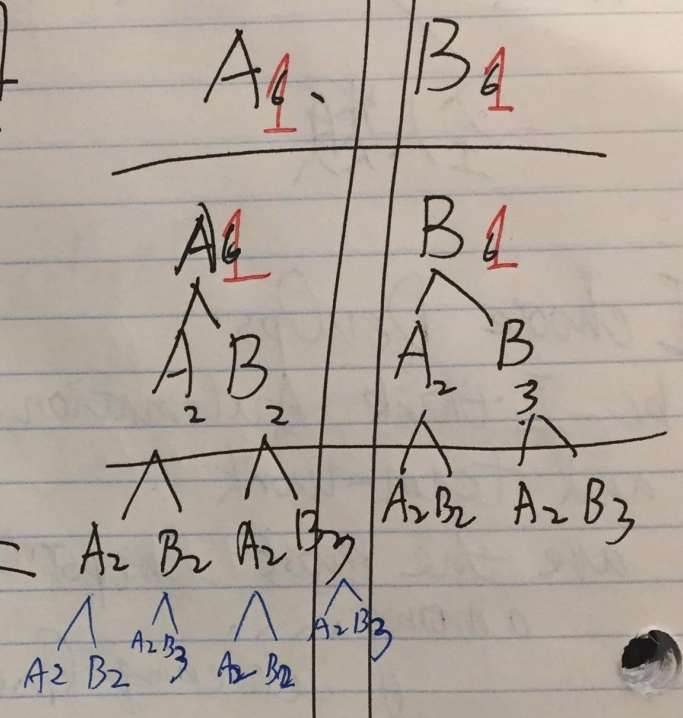 A 1 B 1
A 1 B 1
A 2 B 2 A 2 B 3
A2 B2 A2 B3
= A2 B2 A2 B3
A2 B2 A2 B3 A2 B2 A2 B3